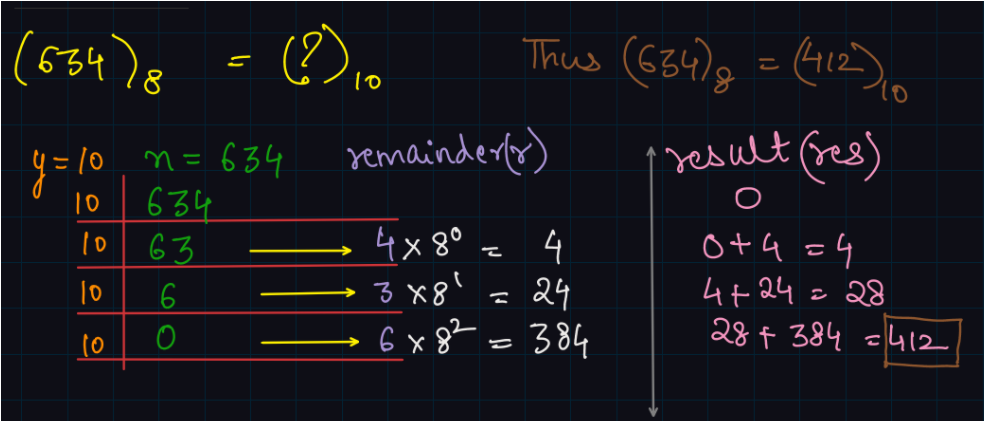 (634)₈ = (?)₁₀
Thus (634)₈ = (412)₁₀
y=10 n= 634 remainder(r)
10 634
10 63 → 4 × 8⁰ = 4
10 6 → 3 × 8¹ = 24
10 0 → 6 × 8² = 384
result (res)
0
0 + 4 = 4
4 + 24 = 28
28 + 384 = 412